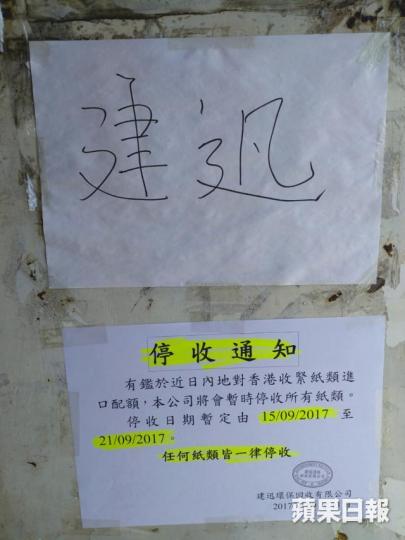 建迅
停收通知
有鑑於近日內地對香港收緊紙類進
口配額，本公司將會暫時停收所有紙類。
停收日期暫定由 15/09/2017 至
21/09/2017。
任何紙類皆一律停收
建迅環保回收有限公司
2017
蘋果日報